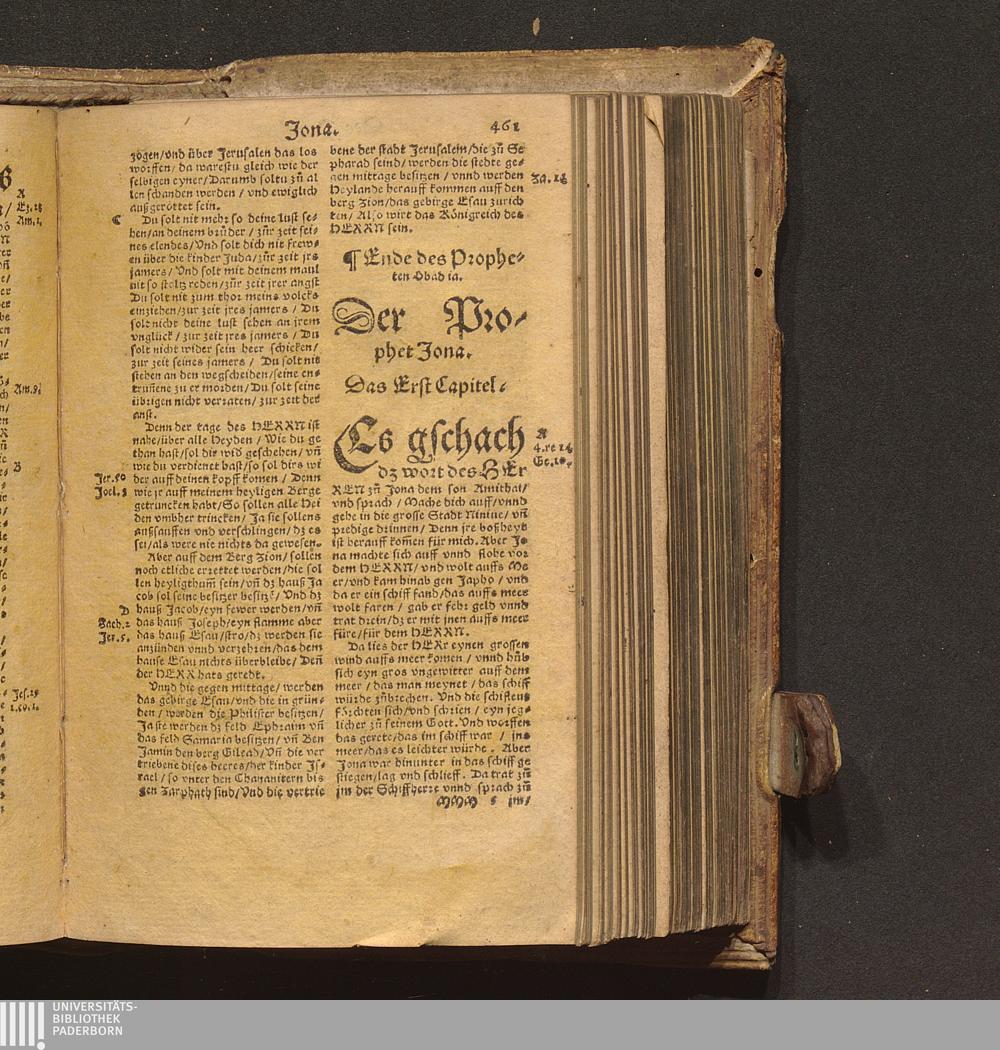 Jona.
461
zogen/vnd über Jerusalen das los
worffen/ da warestu gleich wie der
selbigen eyner/Darumb soltu zů al
len schanden werden / vnd ewiglich
außgeröttet sein.
C
Du solt nit mehr so deine lust se-
hen/an deinem brůder / zůr zeit sei-
nes elendes/Vnd solt dich nit frew-
en über die kinder Juda/zůr zeit jrs
jamers/ Vnd solt mit deinem maul
nit so stoltz reden/zůr zeit jrer angst
Du solt nit zum thor meins volcks
einziehen/zur zeit jres jamers / Du
solt nicht deine lust sehen an jrem
vnglück/ zur zeit jres jamers / Du
solt nicht wider sein heer schicken/
zur zeit seines jamers / Du solt nit
stehen an den wegscheiden/seine en-
truñene zu er morden/Du solt seine
übrigen nicht verraten/ zur zeit der
anst.
Denn der tage des HERRN ist
nahe/über alle Heyden / Wie du ge
than hast/sol dir wid geschehen/ vñ
wie du verdienet hast/so sol dirs wi
der auff deinen kopff komen / Denn
Jer.50
Joel.3
wie jr auff meinem heyligen Berge
getruncken habt/So sollen alle Hei
den vmbher trincken/ Ja sie sollens
außsauffen vnd verschlingen/ dz es
sei/als were nie nichts da gewesen.
Aber auff dem Berg Zion/ sollen
noch etliche errettet werden/die sol
len heyligthum̃ sein/vñ dz hauß Ja
cob sol seine besitzer besitzẽ/ Vnd dz
D
hauß Jacob/eyn fewer werden/vñ
Zach.2
das hauß Joseph/eyn flamme aber
Jer.5.
das hauß Esau/stro/dz werden sie
anzünden vnnd verzehren/das dem
hause Esau nichts überbleibe/ Deñ
der HERR hats geredt.
Vnnd die gegen mittage/ werden
das gebirge Esau/vnd die in grün-
den / werden die Philister besitzen/
Ja sie werden dz feld Ephraim vñ
das feld Samaria besitzen/ vñ Ben
Jamin den berg Gilead/Vñ die ver
triebene dises heeres/der kinder Js-
rael / so vnter den Chananitern bis
gen Zarphath sind/Vnd die vertrie
bene der stadt Jerusalem/die zů Se
pharad seind/ werden die stedte ge-
gen mittage besitzen / vnnd werden
Heylande herauff kommen auff den
berg Zion/das gebirge Esau zurich
ten/ Also wirt das Königreich des
HERRN sein.
¶ Ende des Prophe-
ten Obad ia.
Der Pro-
phet Jona.
Das Erst Capitel.
Es gschach
dz wort des HEr
A
REN zů Jona dem son Amithai/
vnd sprach / Mache dich auff/vnnd
gehe in die grosse Stadt Niniue/ vñ
predige drinnen/ Denn jre boßheyt
ist herauff kom̃en für mich. Aber Jo
na machte sich auff vnnd flohe vor
dem HERRN/ vnd wolt auffs Me
er/vnd kam hinab gen Japho / vnd
da er ein schiff fand/das auffs meer
wolt faren / gab er fehr geld vnnd
trat drein/dz er mit jnen auffs meer
füre/für dem HERRN.
Da lies der HERr eynen grossen
wind auffs meer komen / vnnd hůb
sich eyn gros vngewitter auff dem
meer / das man meynet / das schiff
würde zůbrechen. Vnd die schifleut
förchten sich/vnd schrien / eyn jeg-
licher zů seinem Gott. Vnd worffen
das gerete/das im schiff war / jns
meer/das es leichter würde. Aber
Jona war hinunter in das schiff ge
stiegen/lag vnd schlieff. Da trat zů
jm der Schiffherre vnnd sprach zů
jm/
UNIVERSITÄTS-
BIBLIOTHEK
PADERBORN